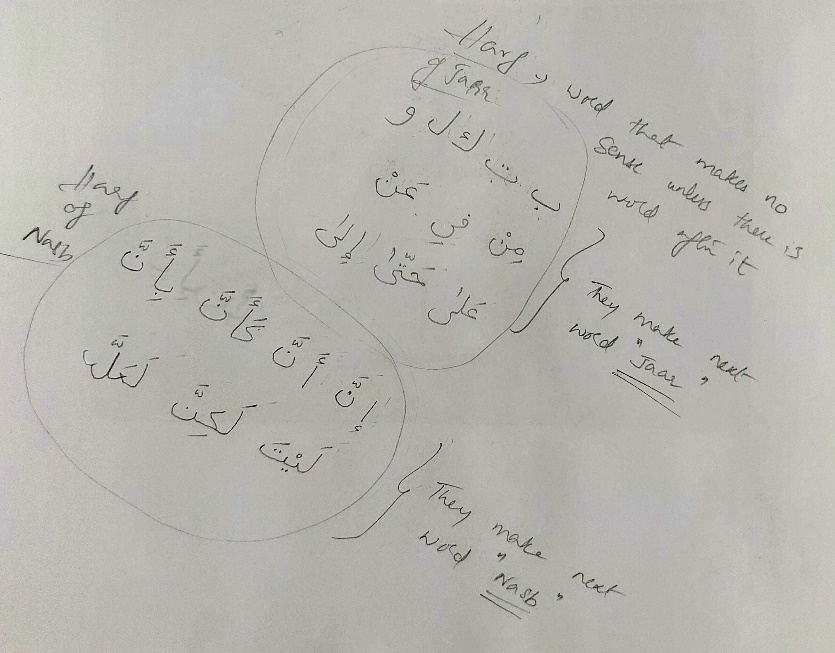 Harf → word that makes no
sense unless there is
word after it
Harf
of Jarr
ب ت ك ل و
مِنْ فِي عَنْ
عَلىٰ حَتّىٰ إِلىٰ
They make next
word "Jaar"
Harf
of
Nasb
إِنَّ أَنَّ كَأَنَّ بِأَنَّ
لَيْتَ لَكِنَّ لَعَلَّ
They make next
word "Nasb"